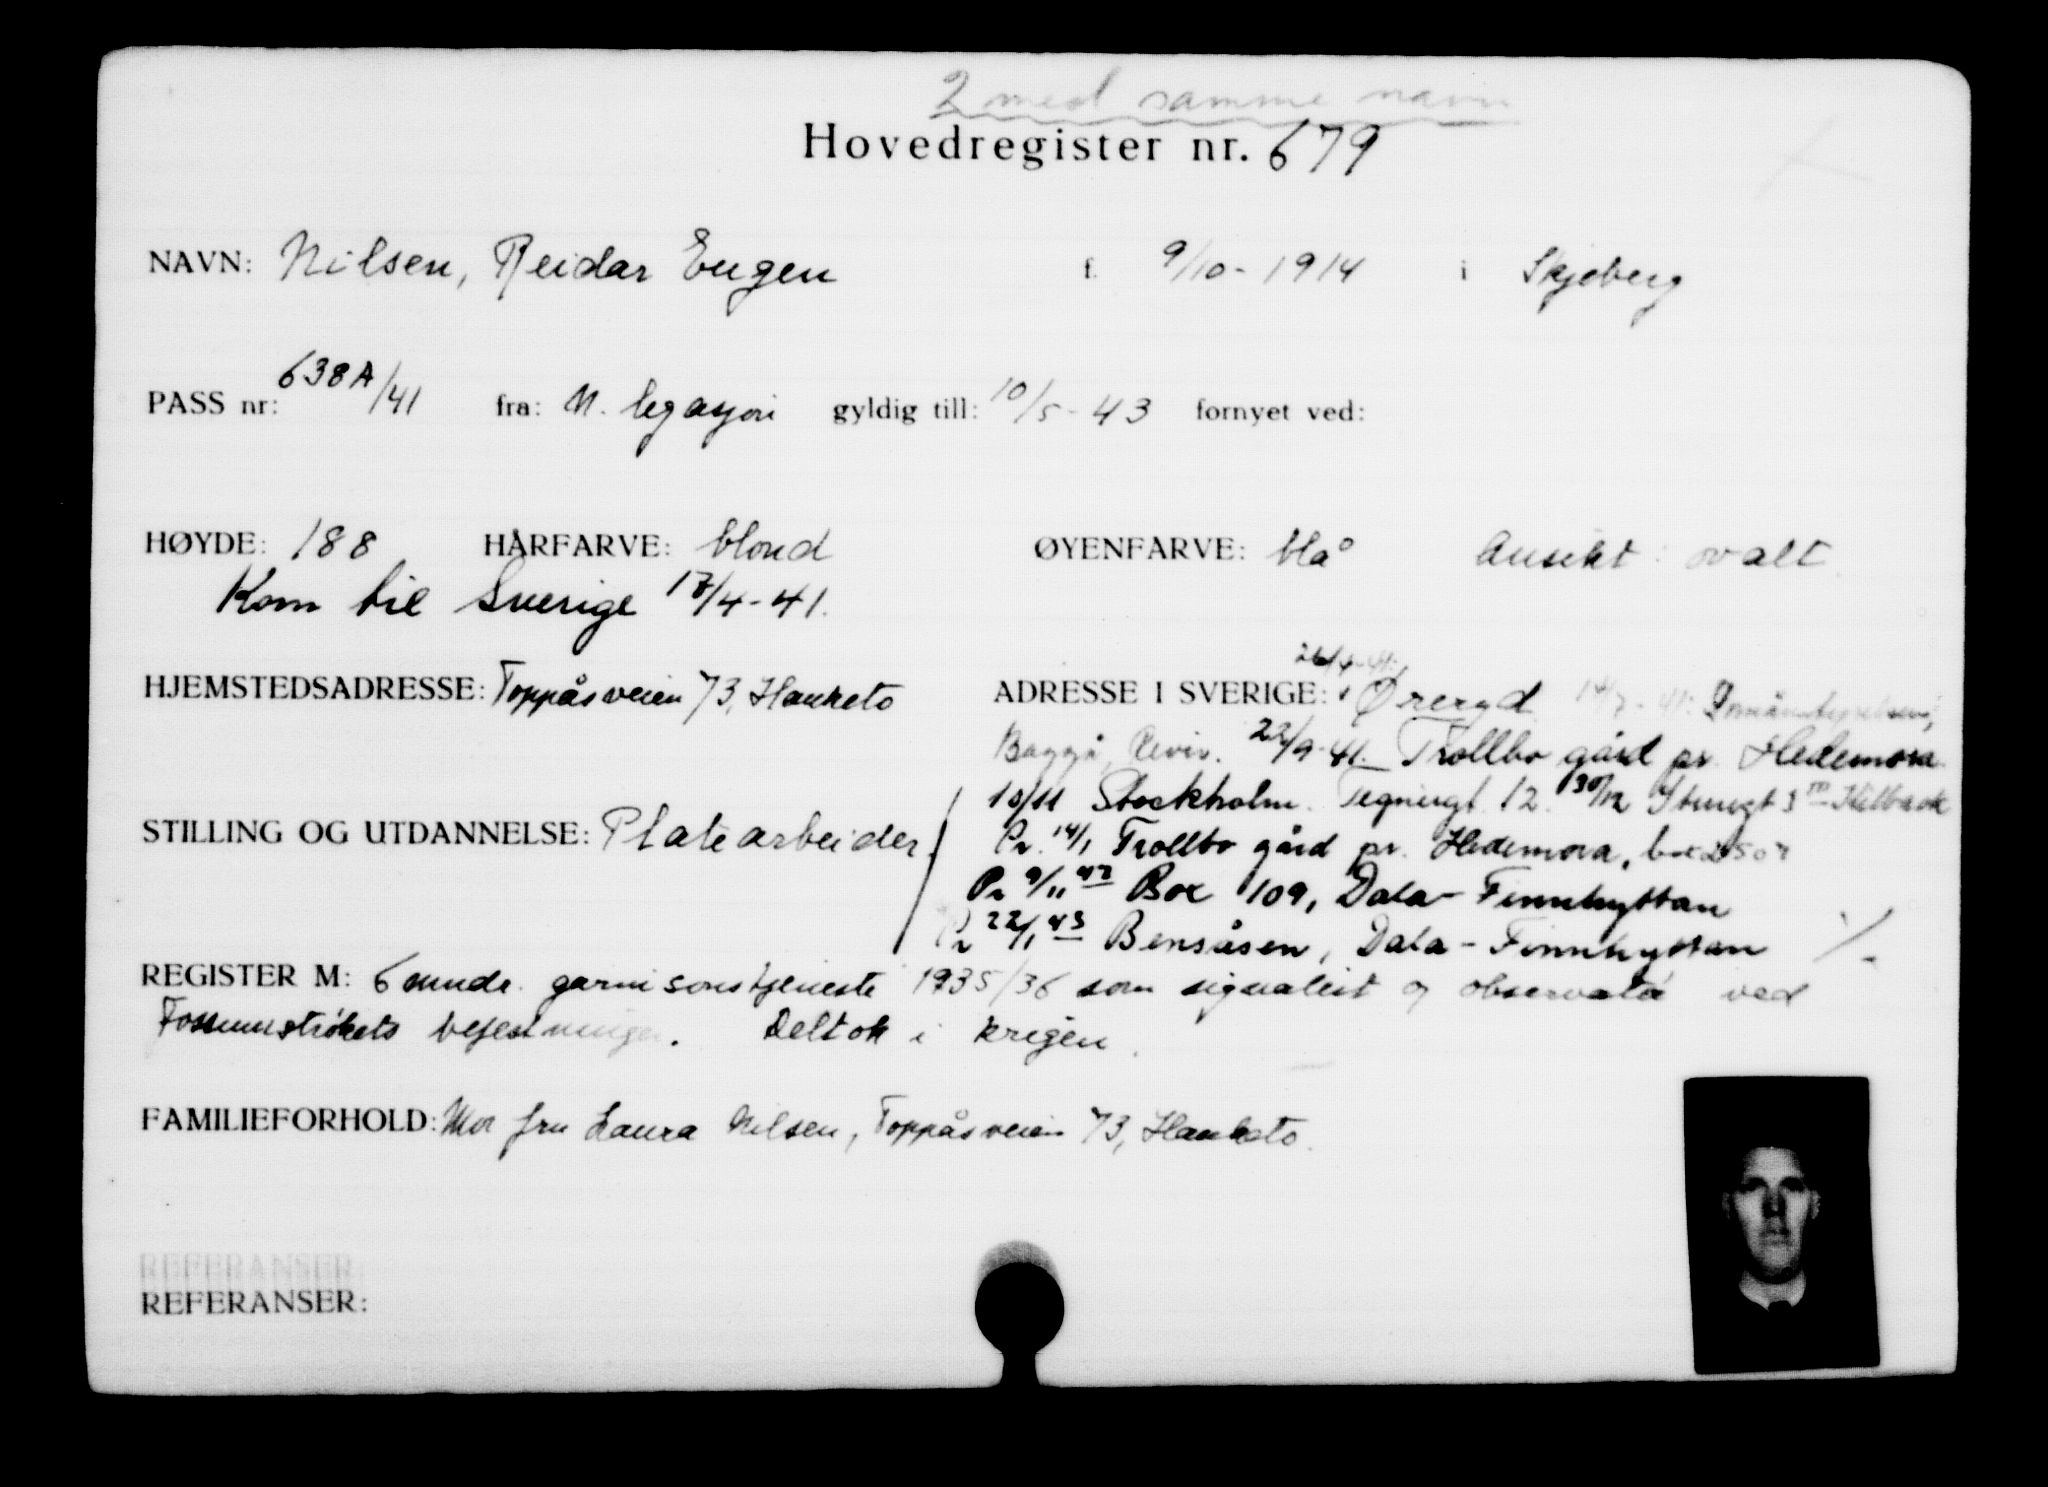 2 med samme navn
Hovedregister nr. 679
NAVN: Nilsen, Reidar Eugen f. 9/10-1914 i Skjeberg
PASS nr: 638A/41 fra: N. legasjon gyldig till: 10/5-43 fornyet ved:
HØYDE: 188 HÅRFARVE: blond ØYENFARVE: blå Ansikt: ovalt
Kom til Sverige 17/4-41.
HJEMSTEDSADRESSE: Toppåsveien 73, Hauketo
ADRESSE I SVERIGE: Øreryd
Baggå, 22/9-41. Trollbo gård pr. Hedemora
10/11 Stockholm. Tegnergt. 12. 30/12
Pr. 14/1 Trollbo gård pr. Hedemora,
Pr 9/11 42 Box 109, Dala-Finnhyttan
Pr 22/1 43 Bensåsen, Dala-Finnhyttan
STILLING OG UTDANNELSE: Platearbeider.
REGISTER M: 6 mndr. garnisonstjeneste 1935/36 som signalist og observatør ved
Fossumstrøkets befestninger. Deltok i krigen.
FAMILIEFORHOLD: Mor fru Laura Nilsen, Toppåsveien 73, Hauketo.
REFERANSER
REFERANSER: